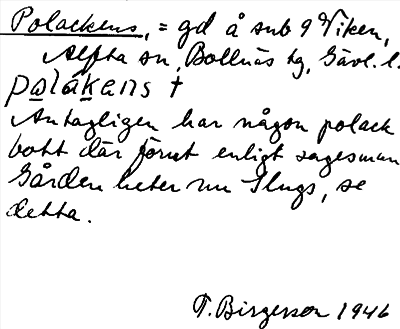 Polackens, = gd å sub 9 Viken,
Alfta sn, Bollnäs tg, Gävl. l.
palákens †
Antagligen har någon polack
bott där förut enligt sagesman
Gården heter nu Slugs, se
detta.
T. Birgerson 1946